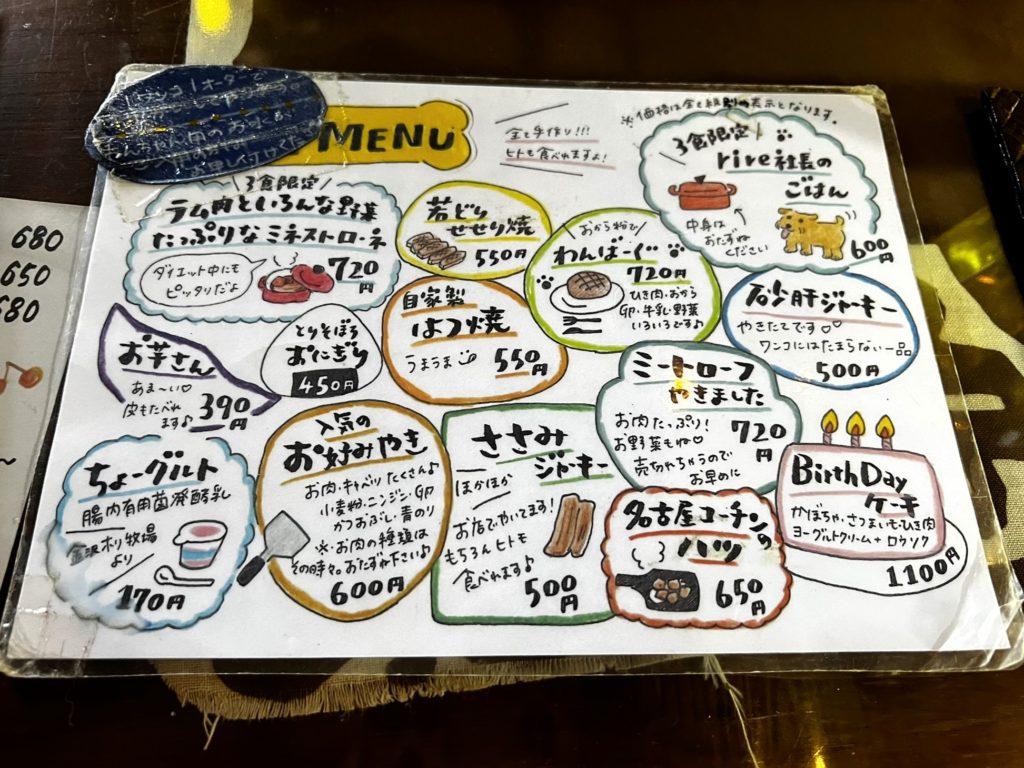 MENU
全て手作り!!!
ヒトも食べれますよ!
※価格は全て税別の表示となります。
3食限定
ラム肉といろんな野菜
たっぷりなミネストローネ
ダイエット中にも
ピッタリだよ
720円
若どり
せせり焼
550円
おから粉で
わんばーぐ
720円
ひき肉・おから
GP・牛乳・野菜
いろいろです♪
3食限定
rire社長の
ごはん
中身は
おたずね
ください
600円
お芋さん
あま〜い♡
皮もたべれ
ます♪
390円
とりそぼろ
おにぎり
450円
自家製
はつ焼
うまうま
550円
砂肝ジャーキー
やきたてです♡♡
ワンコにはたまらない一品
500円
ミートローフ
やきました
お肉たっぷり!
お野菜もね♡
売切れちゃうので
お早めに
720円
ちょーグルト
腸内有用菌発酵乳
牧場
より
170円
人気の
お好みやき
お肉・キャベツたくさん♪
小麦粉・ニンジン・GP
かつおぶし・青のり
※・お肉の種類は
その時々。おたずね下さい♪
600円
ささみ
ジャーキー
ほかほか
お店でやいてます!
もちろんヒトも
食べれます♪
500円
名古屋コーチンの
ハツ
650円
BirthDay
ケーキ
かぼちゃ・さつまいも・ひき肉
ヨーグルトクリーム+ロウソク
1100円
680
650
680